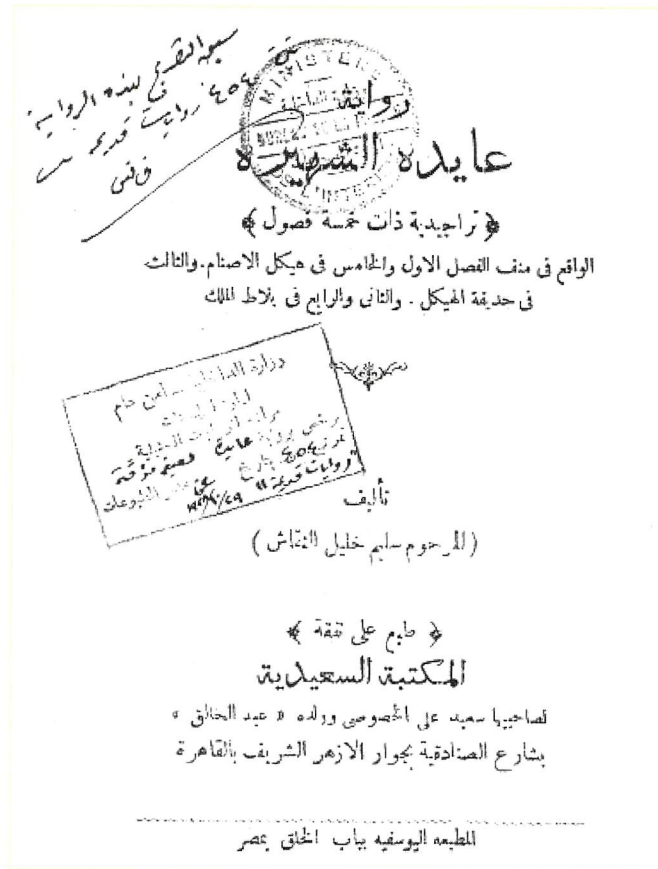 سبق التصريح بهذه الرواية
تحت ٤٥٤ روايات قديمة
MINISTERE
رواية
عايده الشهيرة
﴿ تراجيدية ذات خمسة فصول ﴾
الواقع فى منف الفصل الاول والخامس فى هيكل الاصنام . والثالث
فى حديقة الهيكل . والثانى والرابع فى بلاط الملك
وزارة الداخلية
عايدة بصفة مؤقتة
٤٥٤
روايات قديمة
المطبوعات
تأليف
( المرحوم سليم خليل النقاش )
﴿ طبع على نفقة ﴾
المكتبة السعيدية
لصاحبيها سعيد على الخصوصى وولده « عبد الخالق »
بشارع الصنادقية بجوار الازهر الشريف بالقاهرة
المطبعه اليوسفيه بباب الخلق بمصر